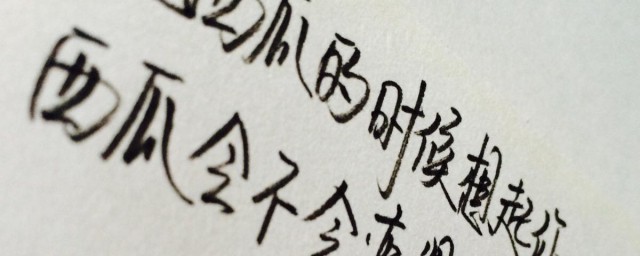 西瓜的时候想起你
西瓜会不会